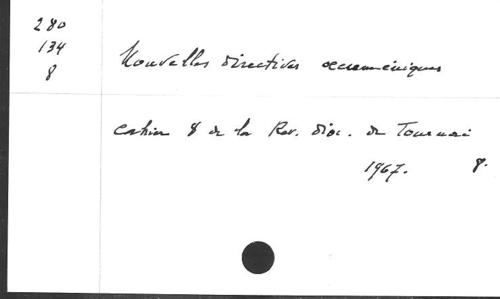 280
134
8
Nouvelles directives oecuméniques
cahier 8 de la Rev. dioc. de Tournai
1967. 8.